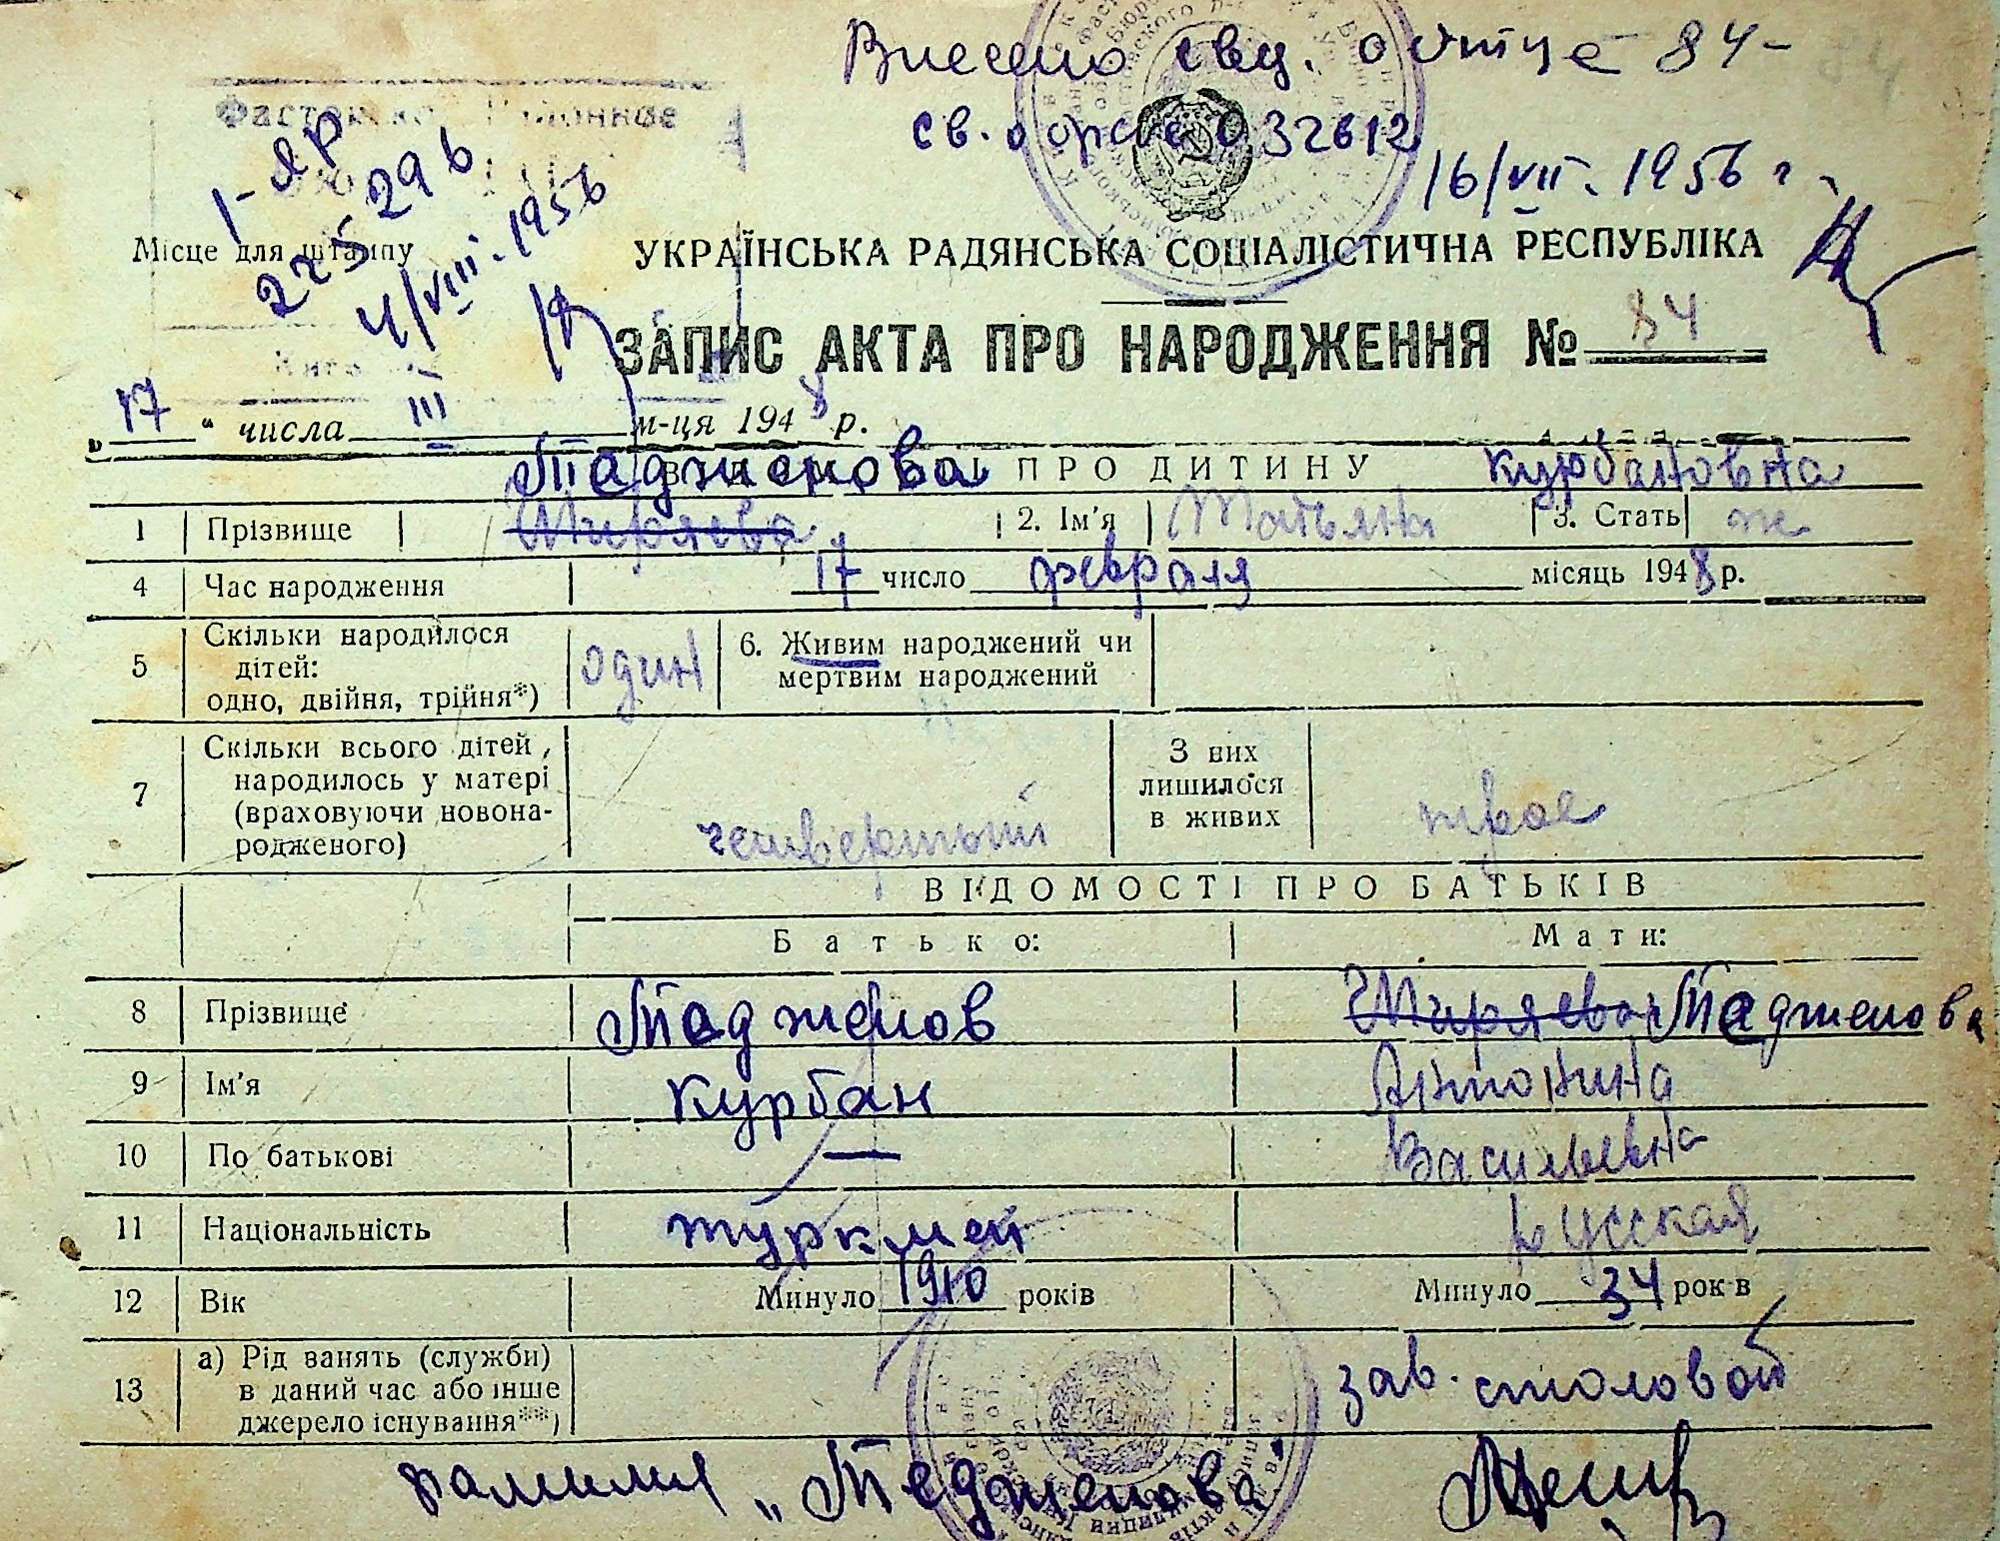 Внесено свед. о отце 84-
св. о браке 032612
16/VII. 1956 г.
Фастовское Районное
1-ЯР
225296
4/VIII. 1956
Місце для штампу
УКРАЇНСЬКА РАДЯНСЬКА СОЦІАЛІСТИЧНА РЕСПУБЛІКА
ЗАПИС АКТА ПРО НАРОДЖЕННЯ № 84
„17“ числа III м-ця 1948 р.
ВІДОМОСТІ ПРО ДИТИНУ
Тадженова Курбановна
1 Прізвище Ширяева 2. Ім'я Татьяна 3. Стать ж
4 Час народження 17 число февраля місяць 1948 р.
5 Скільки народилося дітей: одно, двійня, трійня*) один 6. Живим народжений чи мертвим народжений
7 Скільки всього дітей народилось у матері (враховуючи новонародженого) четвертый З них лишилося в живих трое
ВІДОМОСТІ ПРО БАТЬКІВ
Батько: Мати:
8 Прізвище Тадженов Ширяева Тадженова
9 Ім'я Курбан Антонина
10 По батькові — Васильевна
11 Національність туркмен русская
12 Вік Минуло 1910 років Минуло 34 років
13 а) Рід занять (служби) в даний час або інше джерело існування**) зав. столовой
фамилия „Тедженова“